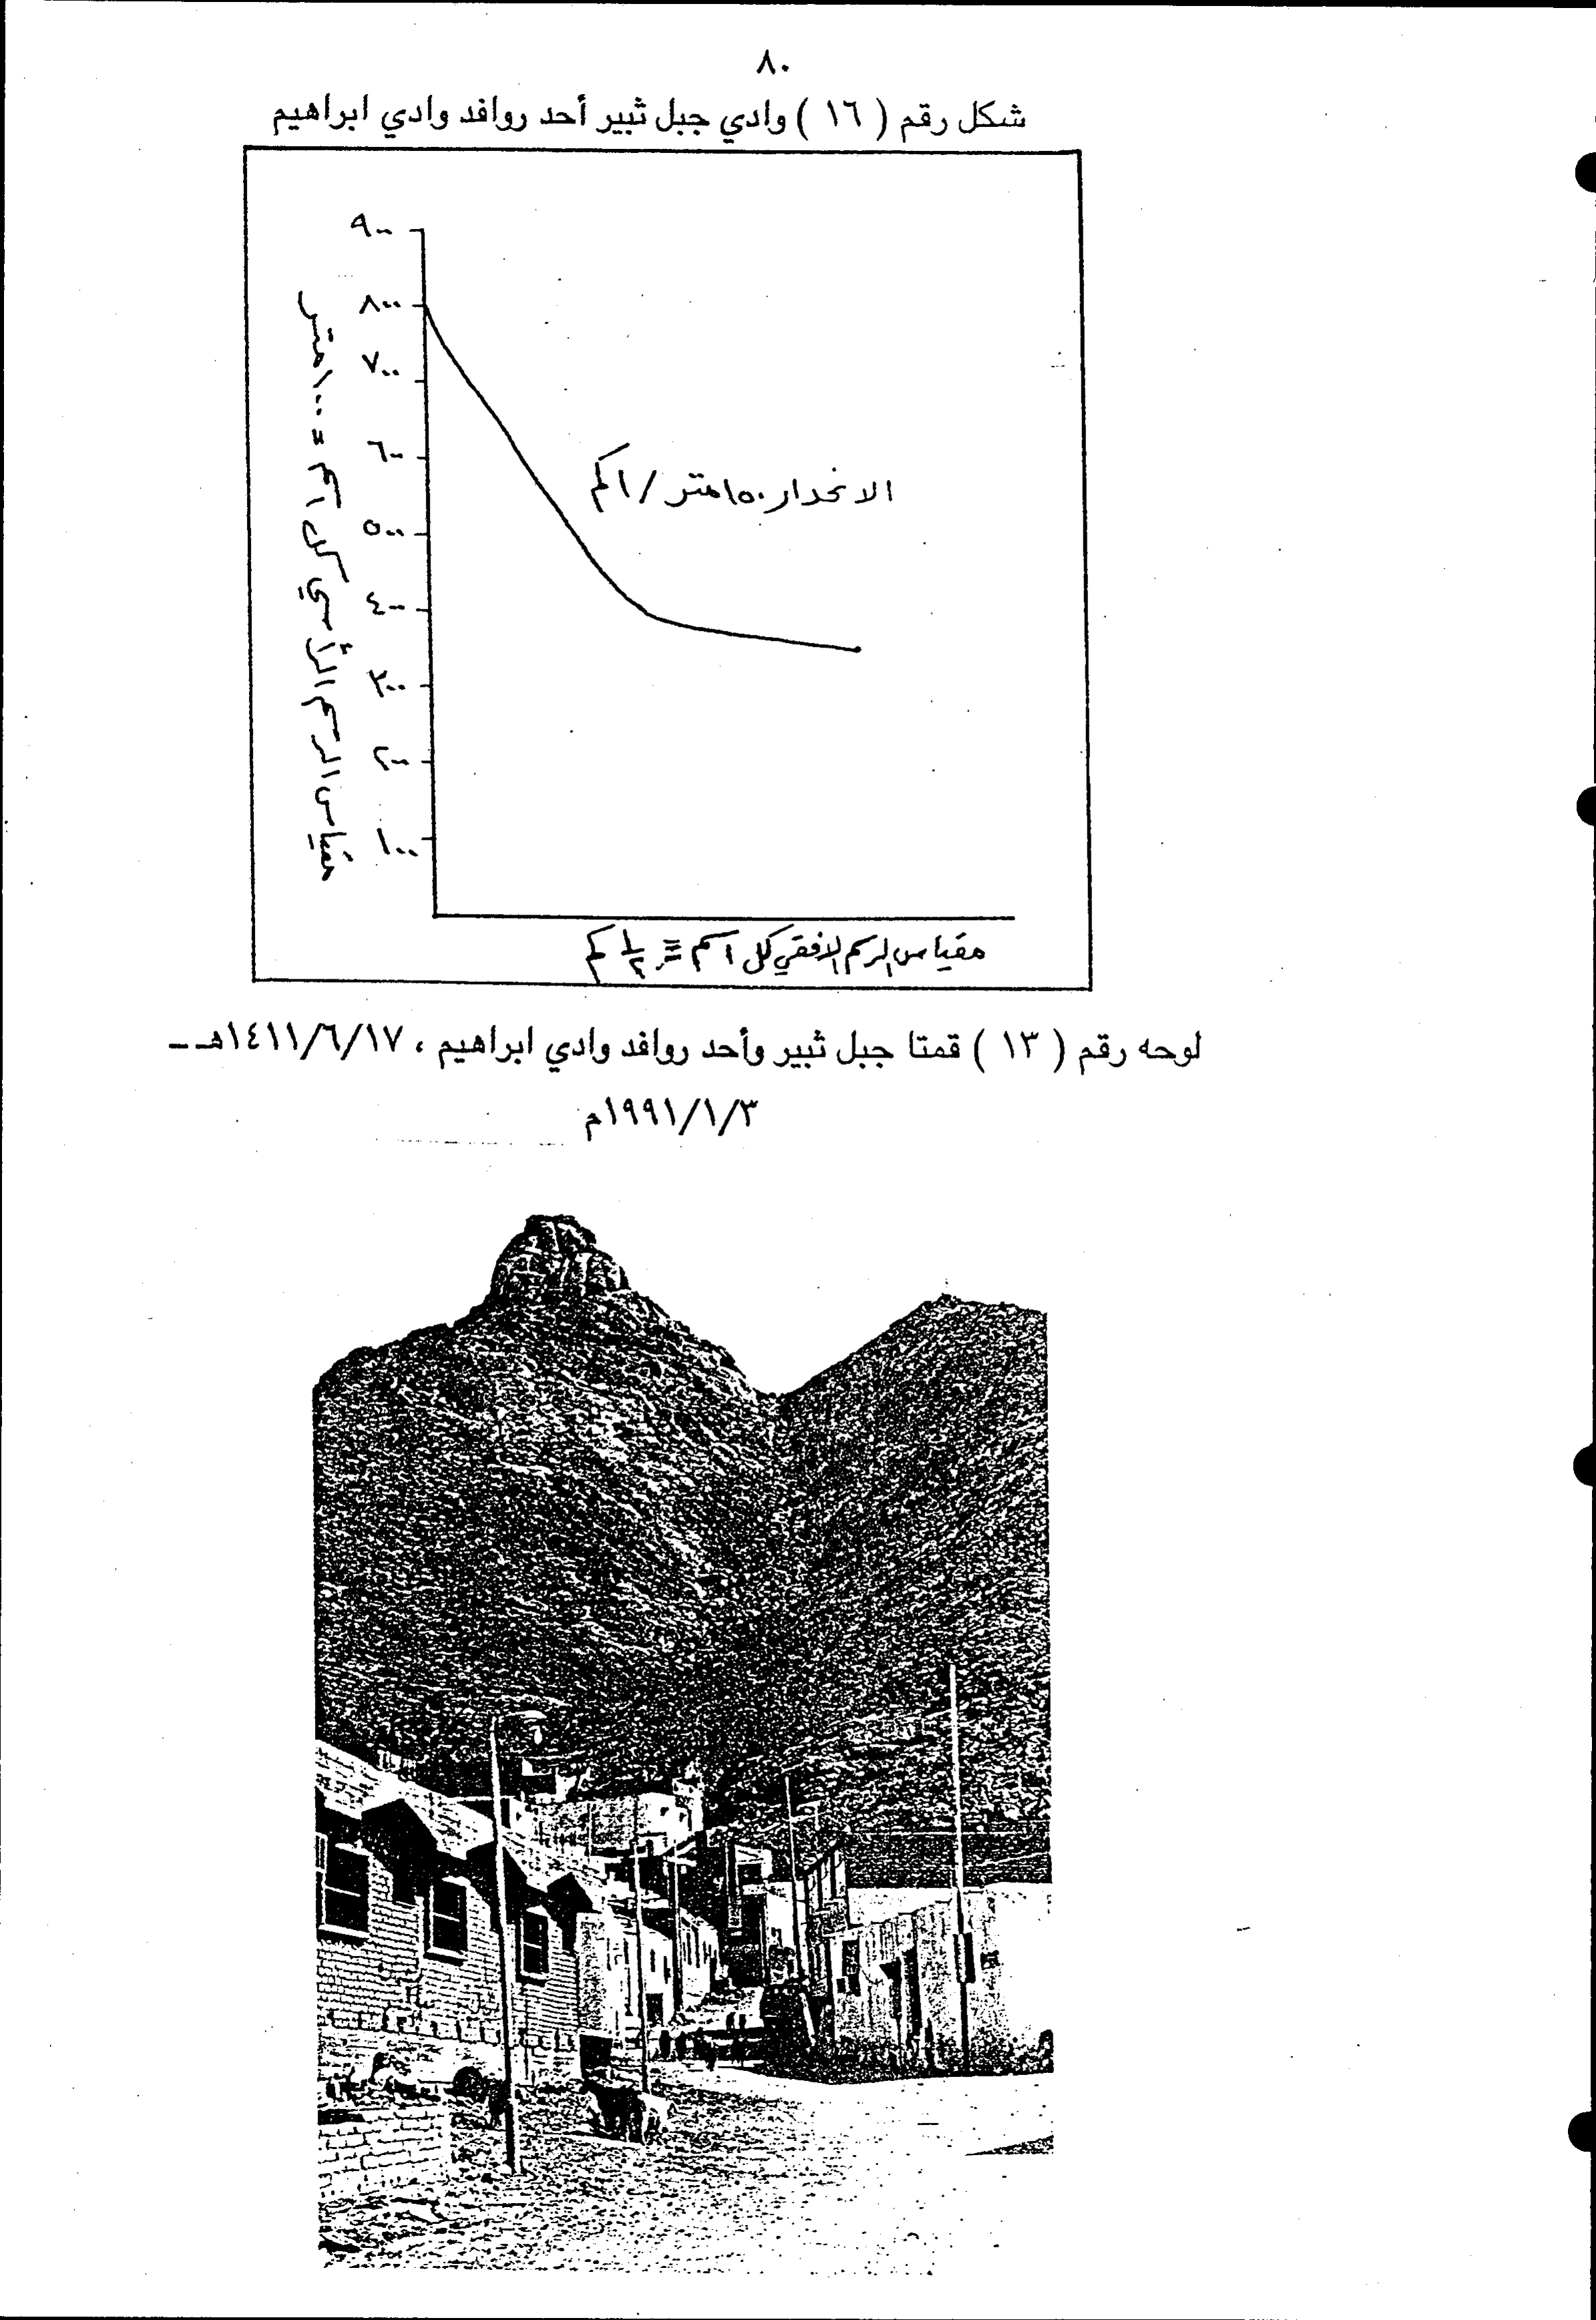 ٨٠
شكل رقم ( ١٦ ) وادي جبل ثبير أحد روافد وادي ابراهيم
٩٠٠
٨٠٠
٧٠٠
٦٠٠
٥٠٠
٤٠٠
٣٠٠
٢٠٠
١٠٠
مقياس الرسم الرأسي كل ١سم = ١٠٠متر
الانحدار ١٥٠متر/١كم
مقياس الرسم الافقي كل ١سم = ١/٢ كم
لوحه رقم ( ١٣ ) قمتا جبل ثبير وأحد روافد وادي ابراهيم ، ١٤١١/٦/١٧هـ ــ
١٩٩١/١/٣م